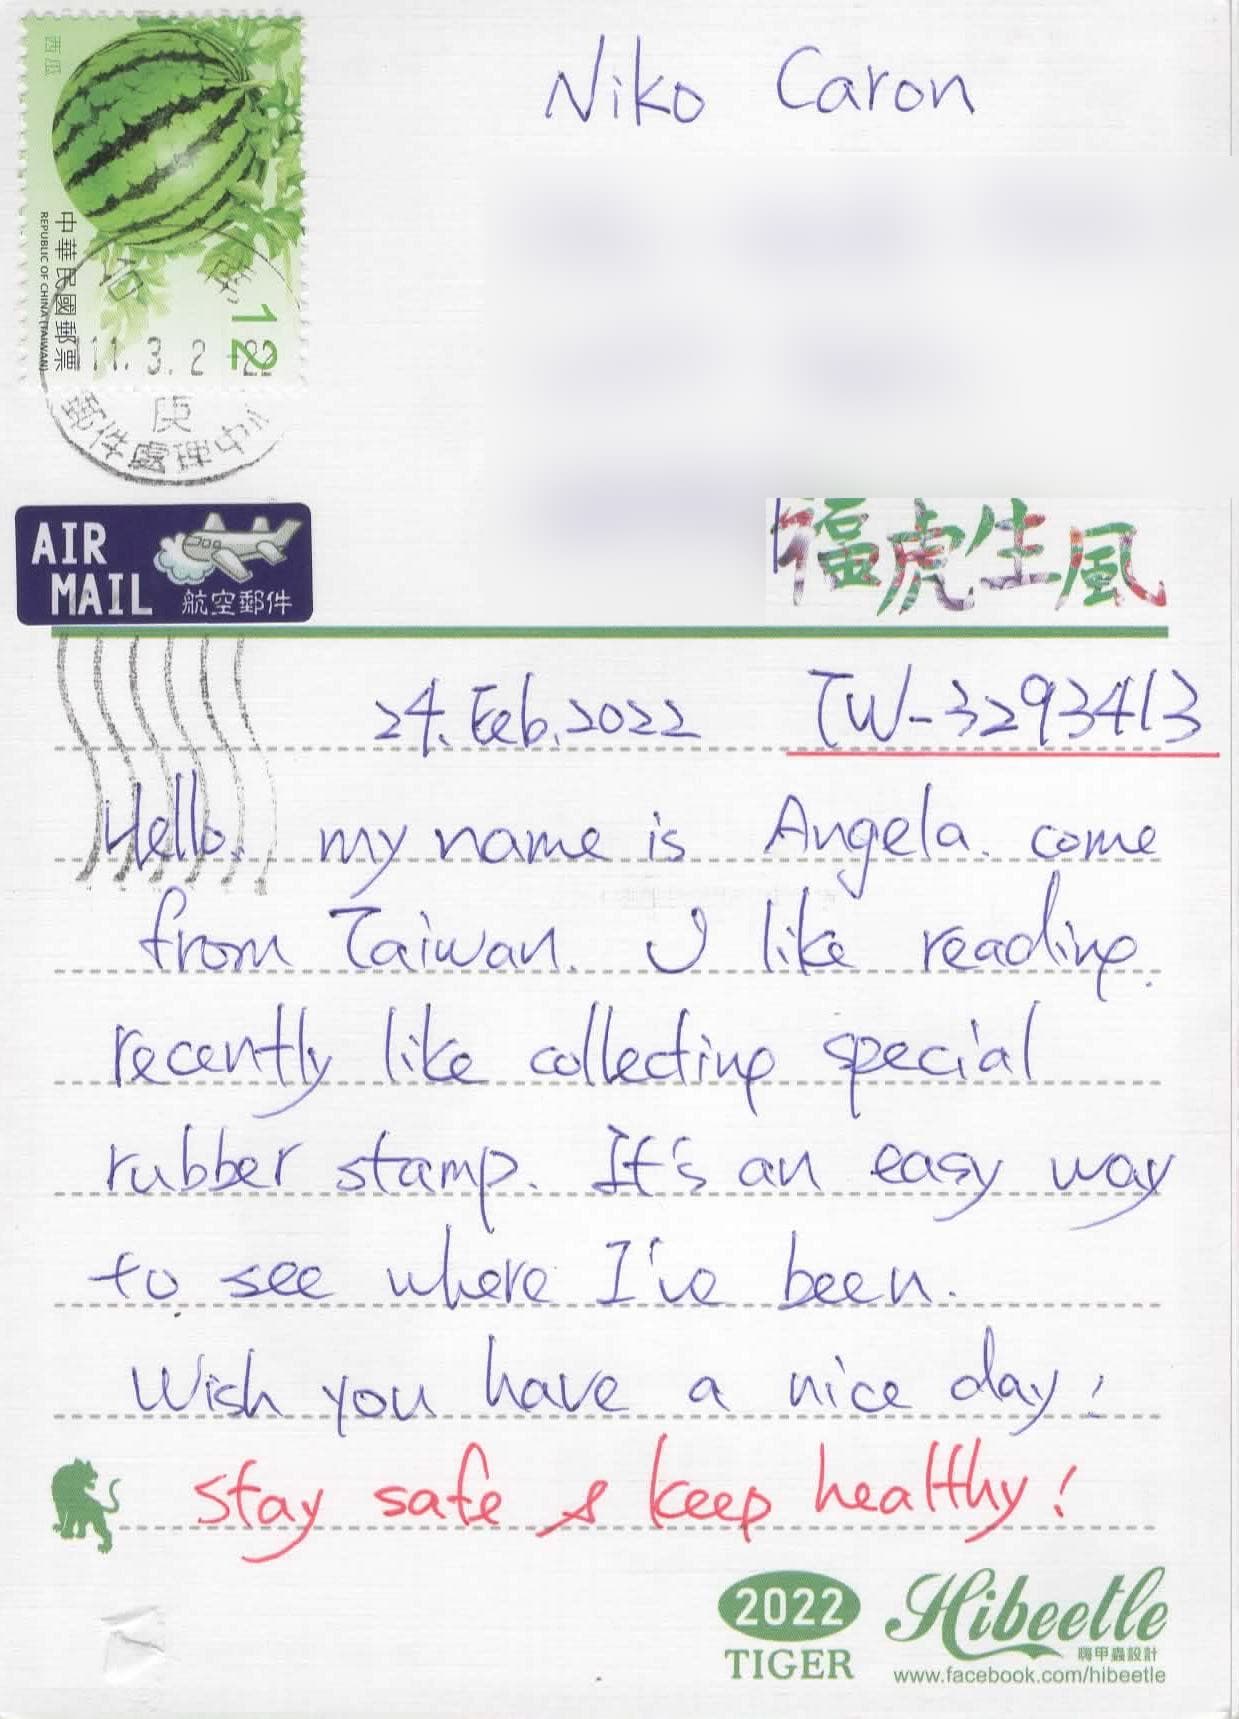 Niko Caron
西瓜
中華民國郵票
REPUBLIC OF CHINA (TAIWAN)
12
11.3.2
郵件處理中心
AIR
MAIL 航空郵件
福虎生風
24. Feb. 2022 TW-3293413
Hello. my name is Angela. come
from Taiwan. I like reading.
recently like collecting special
rubber stamp. It's an easy way
to see where I've been.
Wish you have a nice day!
stay safe & keep healthy!
2022
TIGER
Hibeetle
嗨甲蟲設計
www.facebook.com/hibeetle